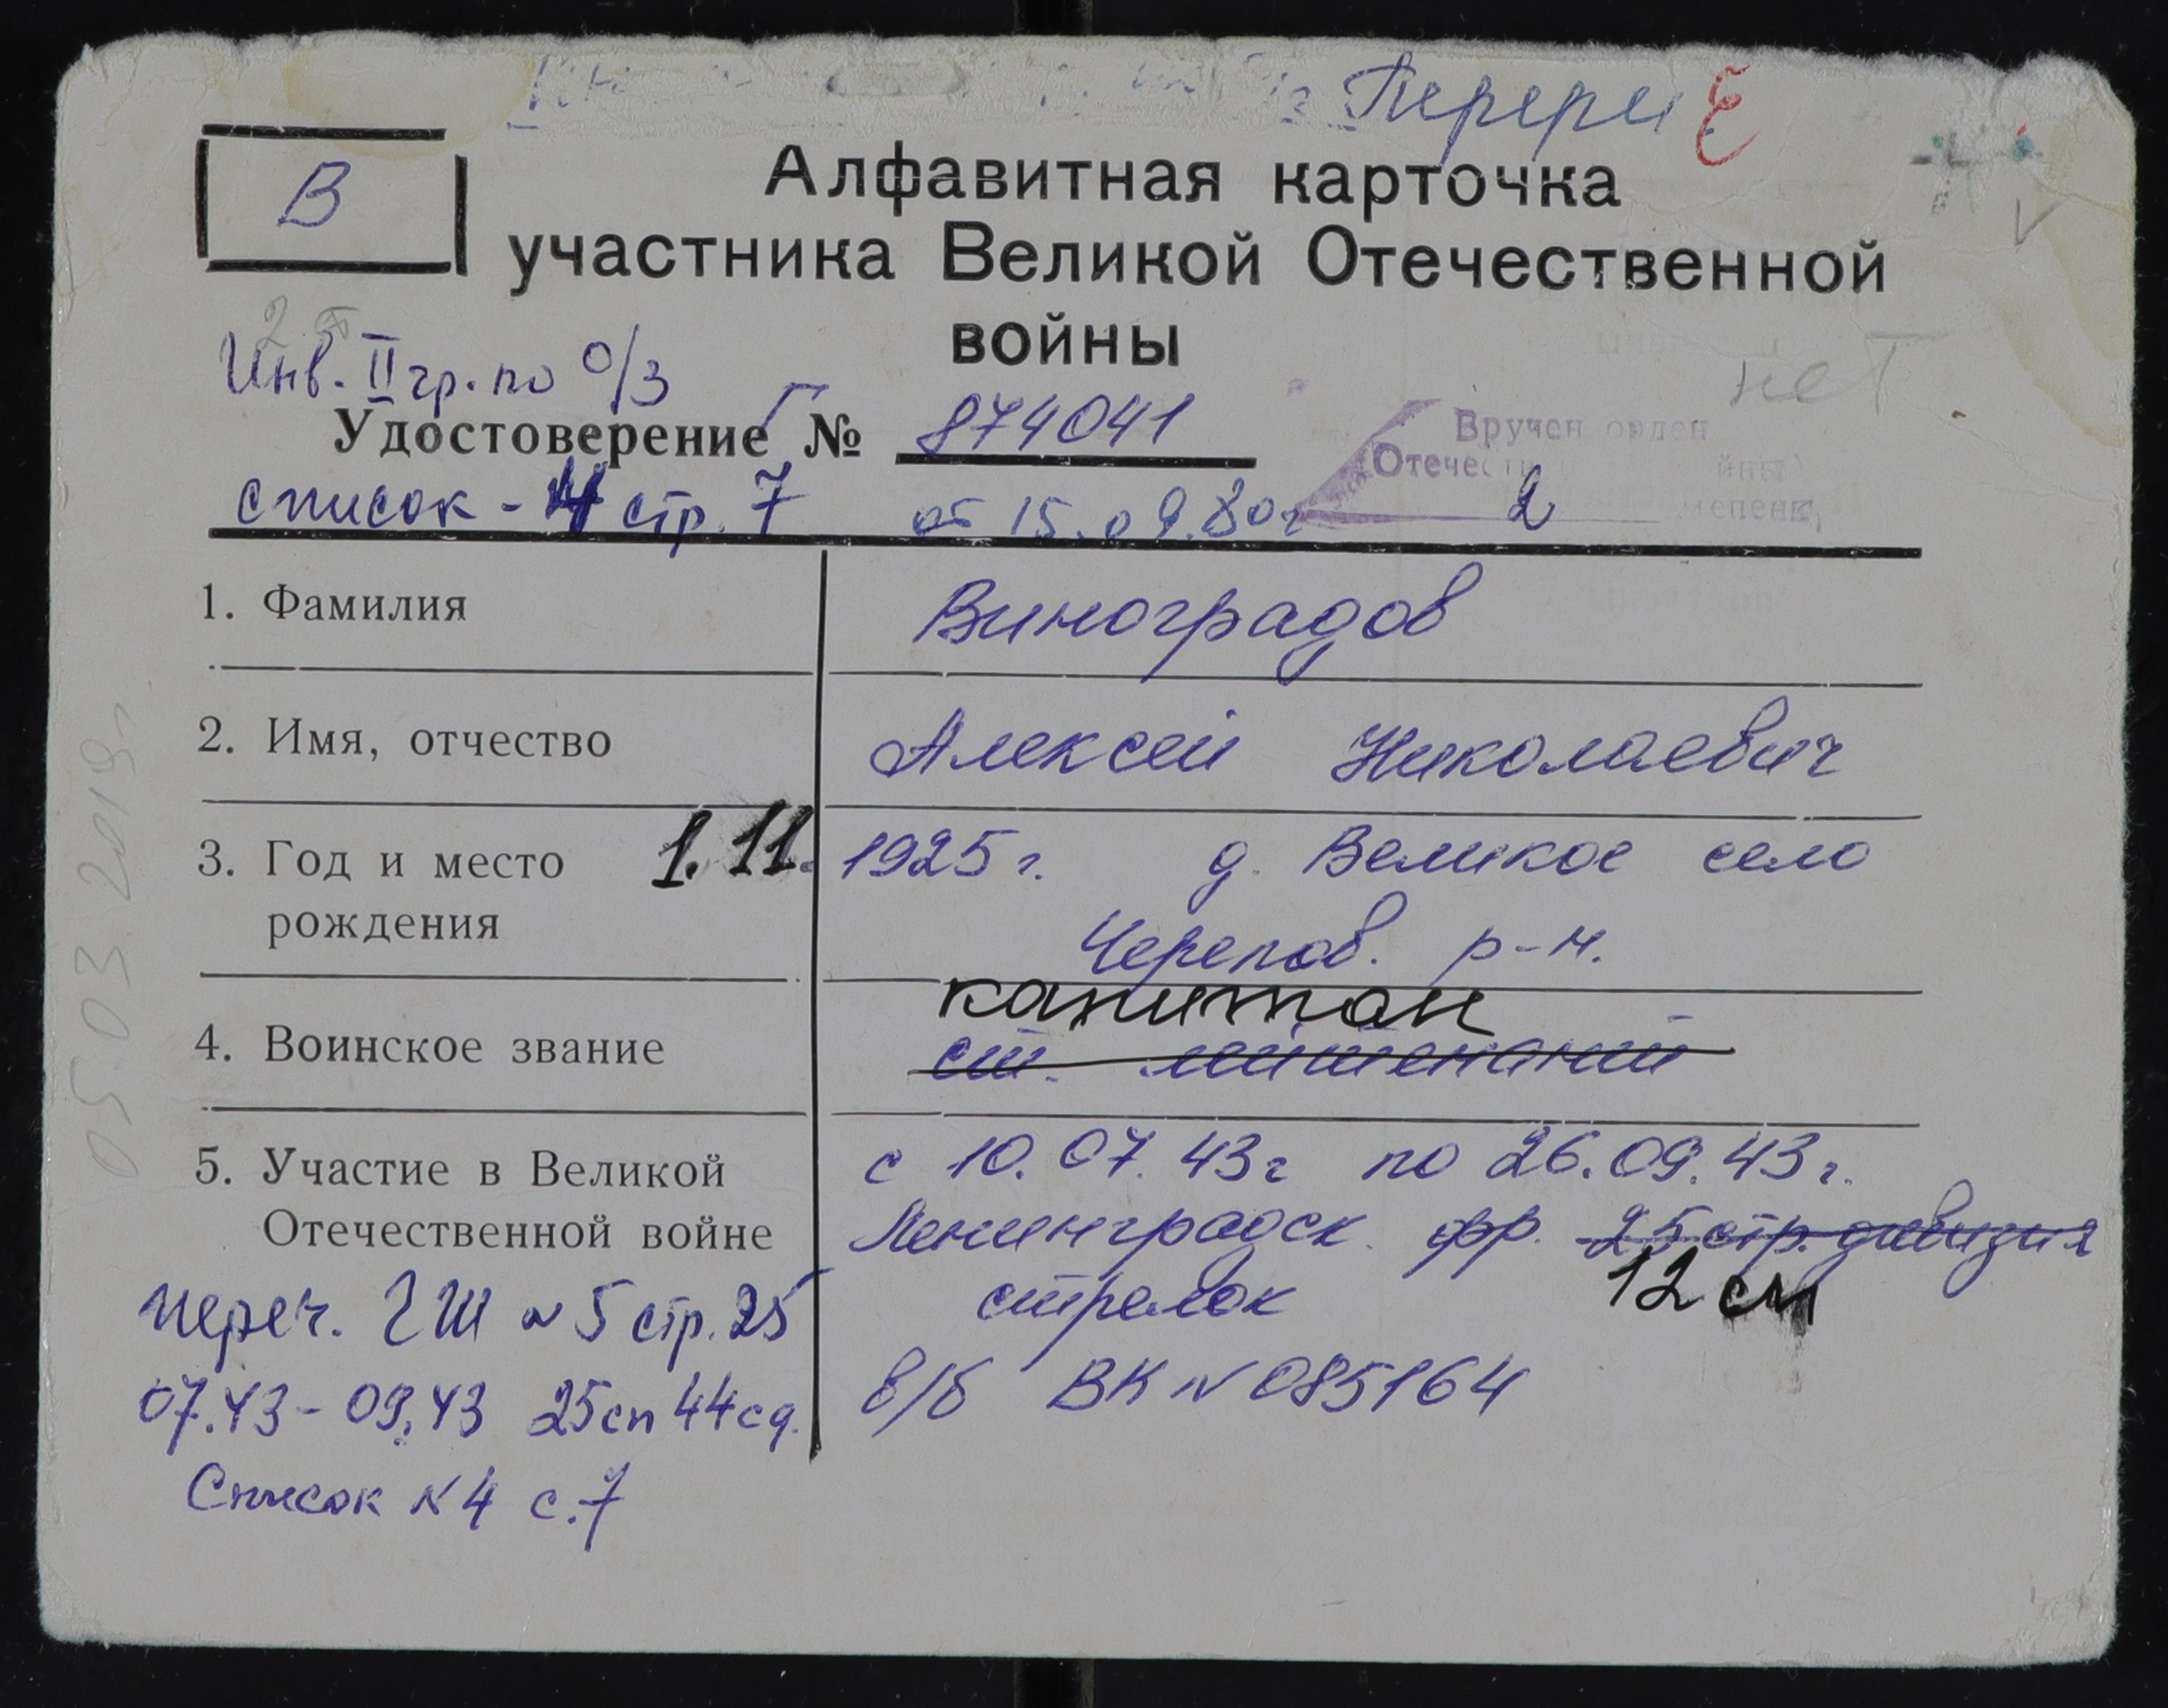 В
Алфавитная карточка
участника Великой Отечественной
войны
нет
Инв. II гр. по о/з
Удостоверение № Г 874041
Вручен орден
Отечест
2
список - 4 стр. 7 от 15.09.80г
1. Фамилия Виноградов
2. Имя, отчество Алексей Николаевич
3. Год и место 1.11. 1925 г. д. Великое село
рождения Черепов. р-н.
капитан
4. Воинское звание ст. лейтенант
5. Участие в Великой с 10.07.43г по 26.09.43 г.
Отечественной войне Ленинградск. фр. 25 стр. дивизия
стрелок 12 сп
Переч. ГШ № 5 стр. 25
в/б ВК № 085164
07.43 - 09.43 25 сп 44 сд.
Список № 4 с. 7
05.03.2019г